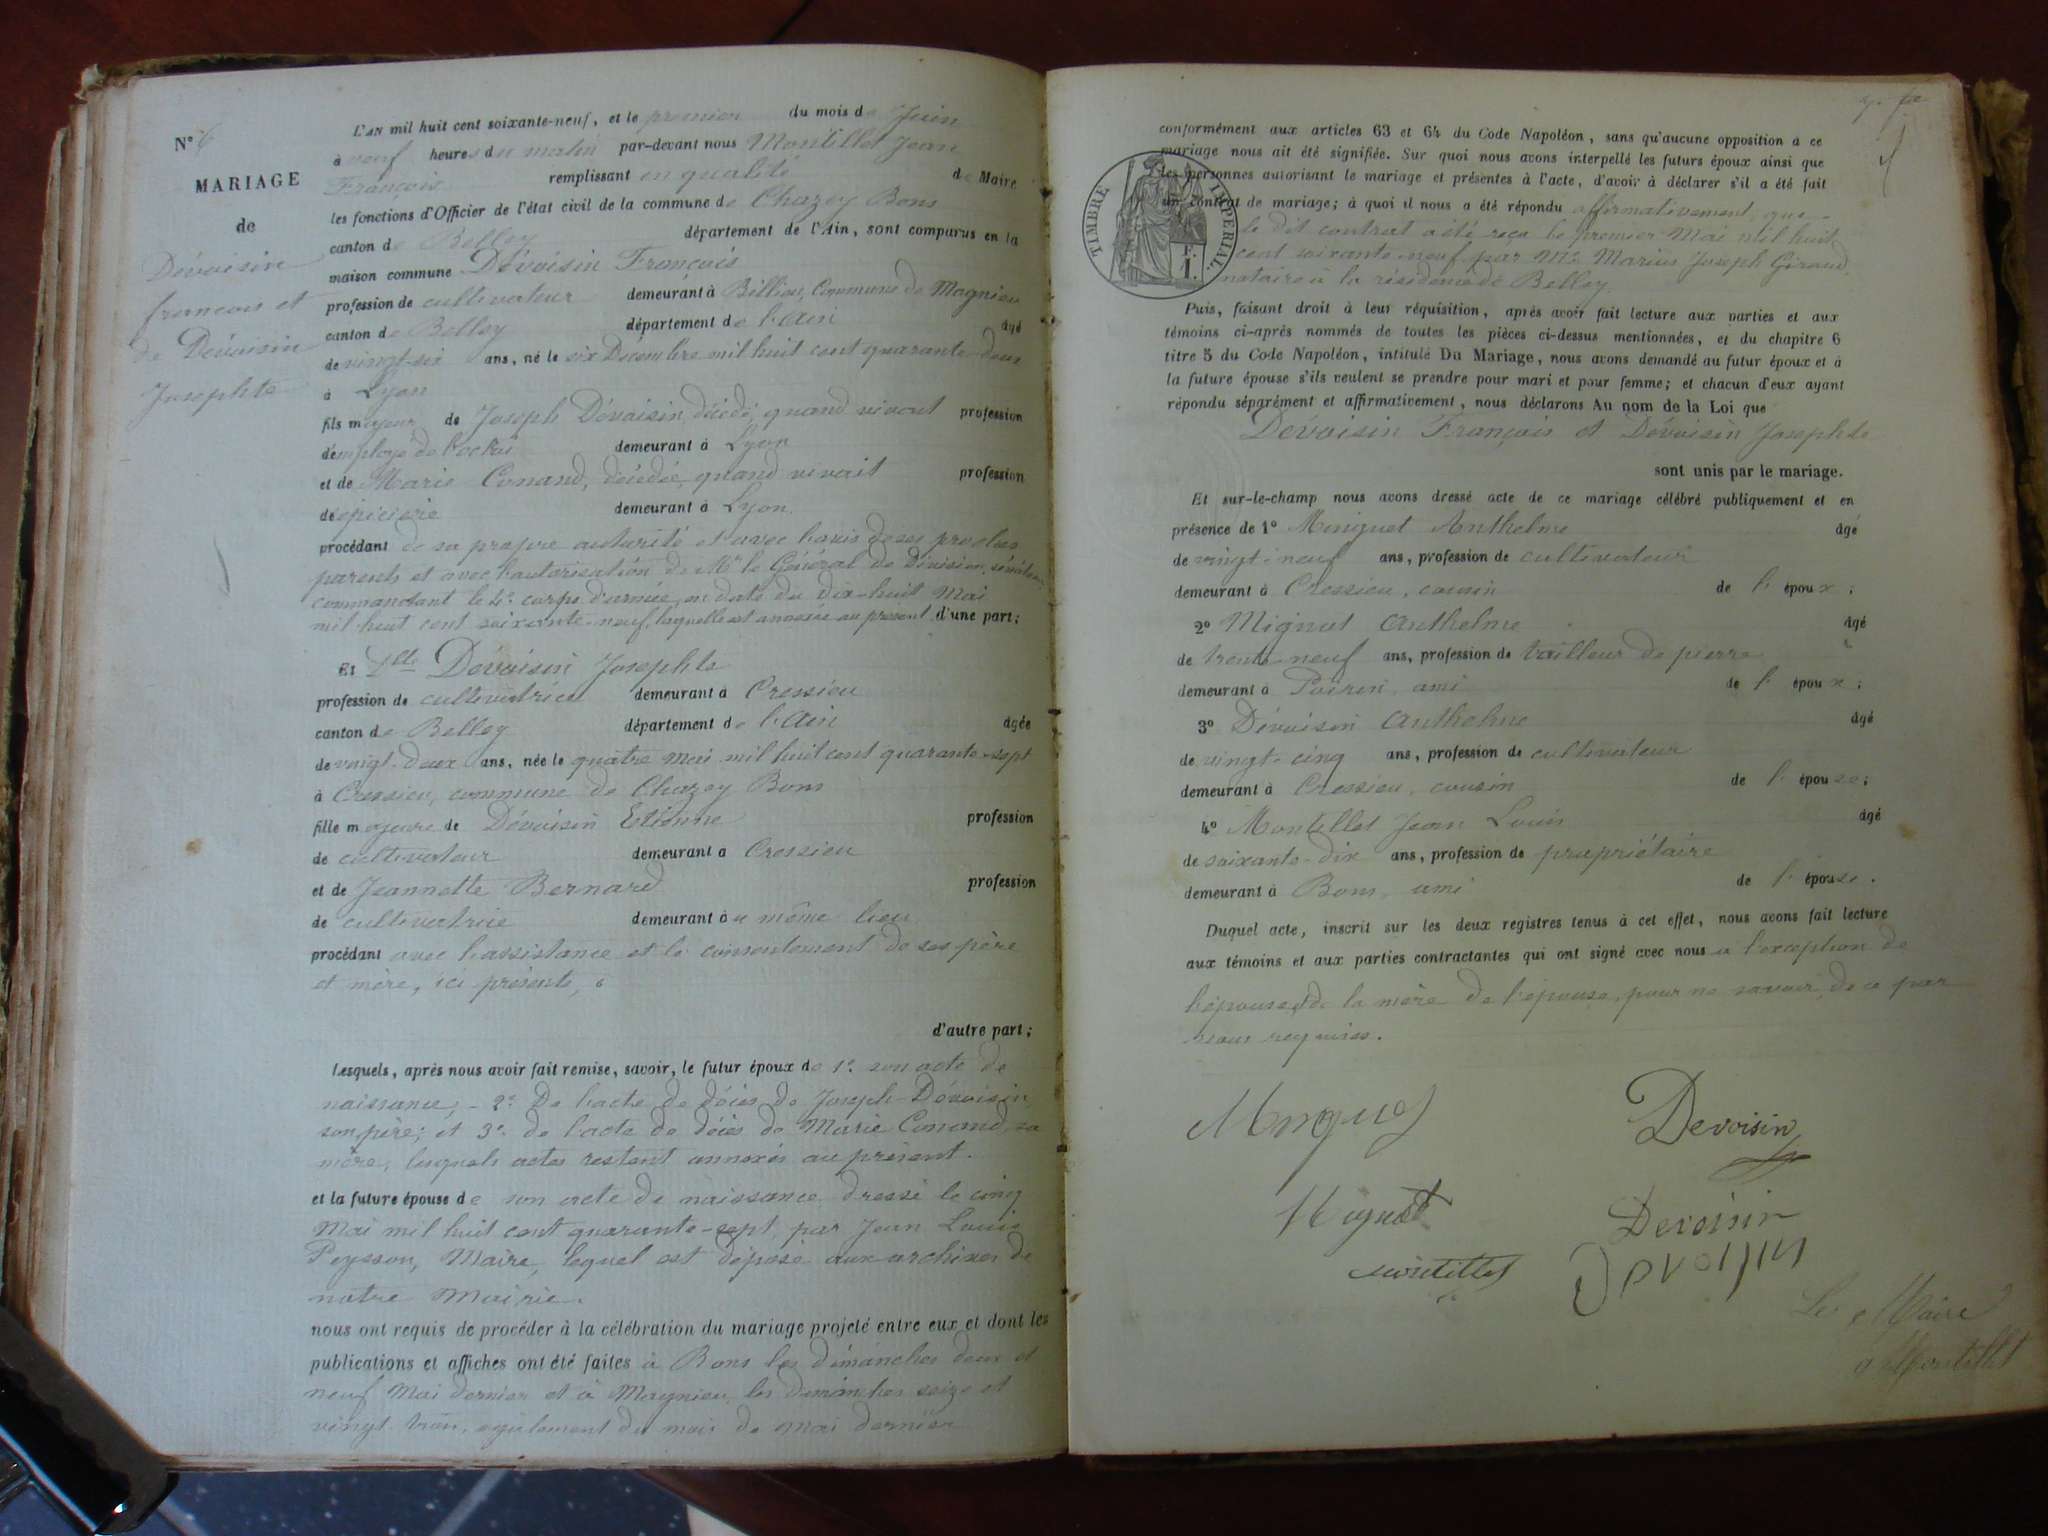 N° 6
MARIAGE
de
Dévoisin
francois et
de Dévoisin
Josephte
L'AN mil huit cent soixante-neuf, et le premier du mois de Juin
à neuf heures du matin par-devant nous Montillet Jean
François remplissant en qualité de Maire
les fonctions d'Officier de l'état civil de la commune de Chazey Bons
canton de Belley département de l'Ain, sont comparus en la
maison commune Dévoisin François
profession de cultivateur demeurant à Billieu, Commune de Magnieu
canton de Belley département de l'Ain âgé
de vingt-six ans, né le six Décembre mil huit cent quarante-deux
à Lyon
fils majeur de Joseph Dévoisin, décédé, quand vivait profession
d'employé de l'octroi demeurant à Lyon
et de Marie Conand, décédée, quand vivait profession
d'épicière demeurant à Lyon
procédant de sa propre autorité et avec l'avis de ses proches
parents et avec l'autorisation de Mr le Général de Division, sénateur,
commandant le 4e corps d'armée, en date du dix-huit Mai
mil huit cent soixante-neuf, laquelle est annexée au présent d'une part;
Et Dlle Dévoisin Josephte
profession de cultivatrice demeurant à Cressieu
canton de Belley département de l'Ain âgée
de vingt-deux ans, née le quatre Mai mil huit cent quarante-sept
à Cressieu, commune de Chazey Bons
fille majeure de Dévoisin Etienne profession
de cultivateur demeurant à Cressieu
et de Jeannette Bernard profession
de cultivatrice demeurant à u même lieu
procédant avec l'assistance et le consentement de ses père
et mère, ici présents,
d'autre part;
Lesquels, après nous avoir fait remise, savoir, le futur époux de 1° son acte de
naissance, - 2° De l'acte de décès de Joseph Dévoisin,
son père; et 3° de l'acte de décès de Marie Conand, sa
mère, lesquels actes restent annexés au présent.
et la future épouse de son acte de naissance dressé le cinq
Mai mil huit cent quarante-sept, par Jean Louis
Peysson, Maire, lequel est déposé aux archives de
notre Mairie.
nous ont requis de procéder à la célébration du mariage projeté entre eux et dont les
publications et affiches ont été faites à Bons les dimanches deux et
neuf Mai dernier et à Magnieu, les dimanches seize et
vingt-trois, également du mois de Mai dernier
conformément aux articles 63 et 64 du Code Napoléon, sans qu'aucune opposition à ce
mariage nous ait été signifiée. Sur quoi nous avons interpellé les futurs époux ainsi que
les personnes autorisant le mariage et présentes à l'acte, d'avoir à déclarer s'il a été fait
un contrat de mariage; à quoi il nous a été répondu affirmativement, que
le dit contrat a été reçu le premier Mai mil huit
cent soixante-neuf par Me Marius Joseph Giraud,
notaire à la résidence de Belley
TIMBRE IMPÉRIAL.
1 F.
Puis, faisant droit à leur réquisition, après avoir fait lecture aux parties et aux
témoins ci-après nommés de toutes les pièces ci-dessus mentionnées, et du chapitre 6
titre 5 du Code Napoléon, intitulé Du Mariage, nous avons demandé au futur époux et à
la future épouse s'ils veulent se prendre pour mari et pour femme; et chacun d'eux ayant
répondu séparément et affirmativement, nous déclarons Au nom de la Loi que
Devoisin François et Dévoisin Josephte
sont unis par le mariage.
Et sur-le-champ nous avons dressé acte de ce mariage célébré publiquement et en
présence de 1° Minguet Anthelme âgé
de vingt-neuf ans, profession de cultivateur
demeurant à Cressieu, cousin de l'époux;
2° Mignot Anthelme âgé
de trente-neuf ans, profession de tailleur de pierre
demeurant à Poirin, ami de l'époux;
3° Dévoisin Anthelme âgé
de vingt-cinq ans, profession de cultivateur
demeurant à Cressieu, cousin de l'épouse;
4° Montillet Jean Louis âgé
de soixante-dix ans, profession de propriétaire
demeurant à Bons, ami de l'épouse.
Duquel acte, inscrit sur les deux registres tenus à cet effet, nous avons fait lecture
aux témoins et aux parties contractantes qui ont signé avec nous à l'exception de
l'épouse, de la mère de l'épouse, pour ne savoir, de ce par
nous requises.
Minguet Devoisin
Mignot Devoisin
Montillet Devoisin
Le Maire
Montillet